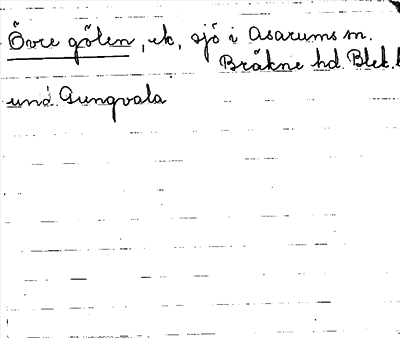 Övre gölen, ek, sjö i Asarums sn.
Bräkne hd. Blek. l
und. Gungvala